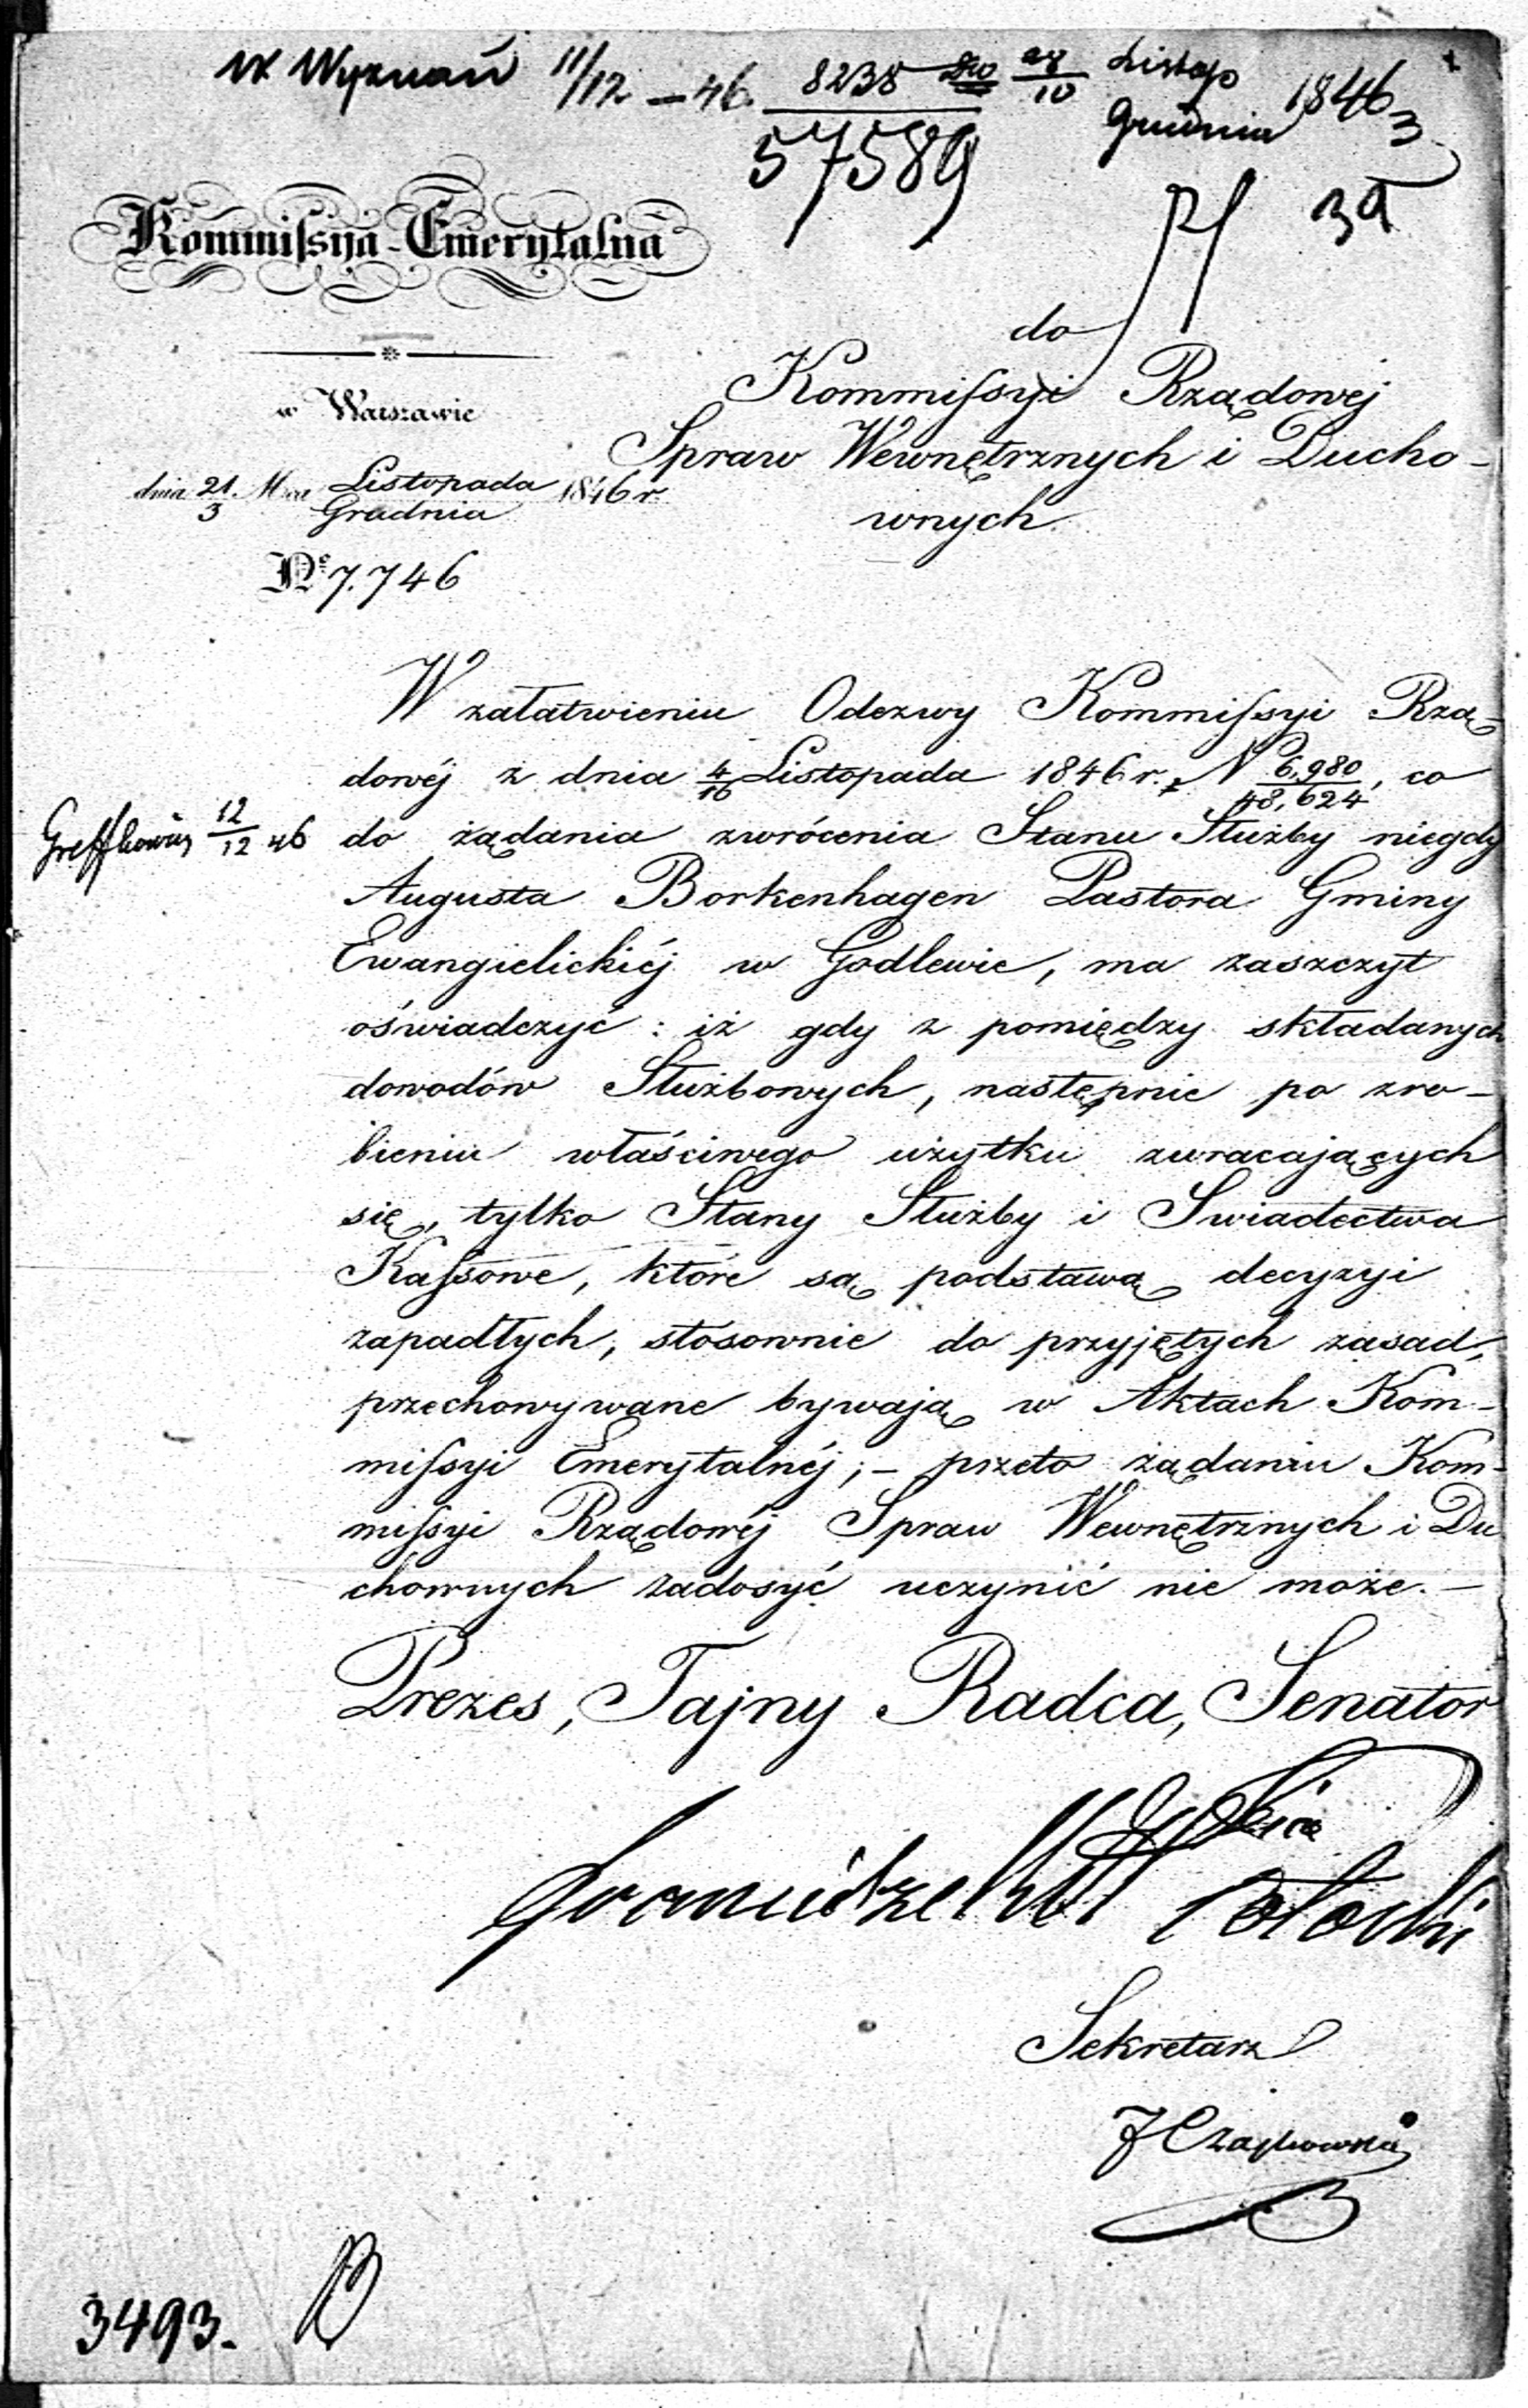 W Wyznań 11/12 – 46. 8238 28/10 Listop Grudnia 1846
57589
3
39
Kommissyja-Emerytalna
w Warszawie
dnia 21/3 Mca Listopada/Grudnia 1846 r.
Nº 7.746
do
Kommissyi Rządowej
Spraw Wewnętrznych i Ducho-
wnych
W załatwieniu Odezwy Kommissyi Rzą-
dowéj z dnia 4/16 Listopada 1846 r. N 6,980/48,624, co
12/12 46
do żądania zwrócenia Stanu Służby niegdy
Augusta Borkenhagen Pastora Gminy
Ewangielickiéj w Godlewie, ma zaszczyt
oświadczyć: iż gdy z pomiędzy składanych
dowodów Służbowych, następnie po zro-
bieniu właściwego użytku zwracających
się, tylko Stany Służby i Swiadectwa
Kassowe, które są podstawą decyzyi
zapadłych, stosownie do przyjętych zasad,
przechowywane bywają w Aktach Kom-
missyi Emerytalnéj; – przeto żądaniu Kom-
missyi Rządowéj Spraw Wewnętrznych i Du
chownych zadosyć uczynić nie może. –
Prezes, Tajny Radca, Senator
Potocki
Sekretarz
J Czaykowski
3493.